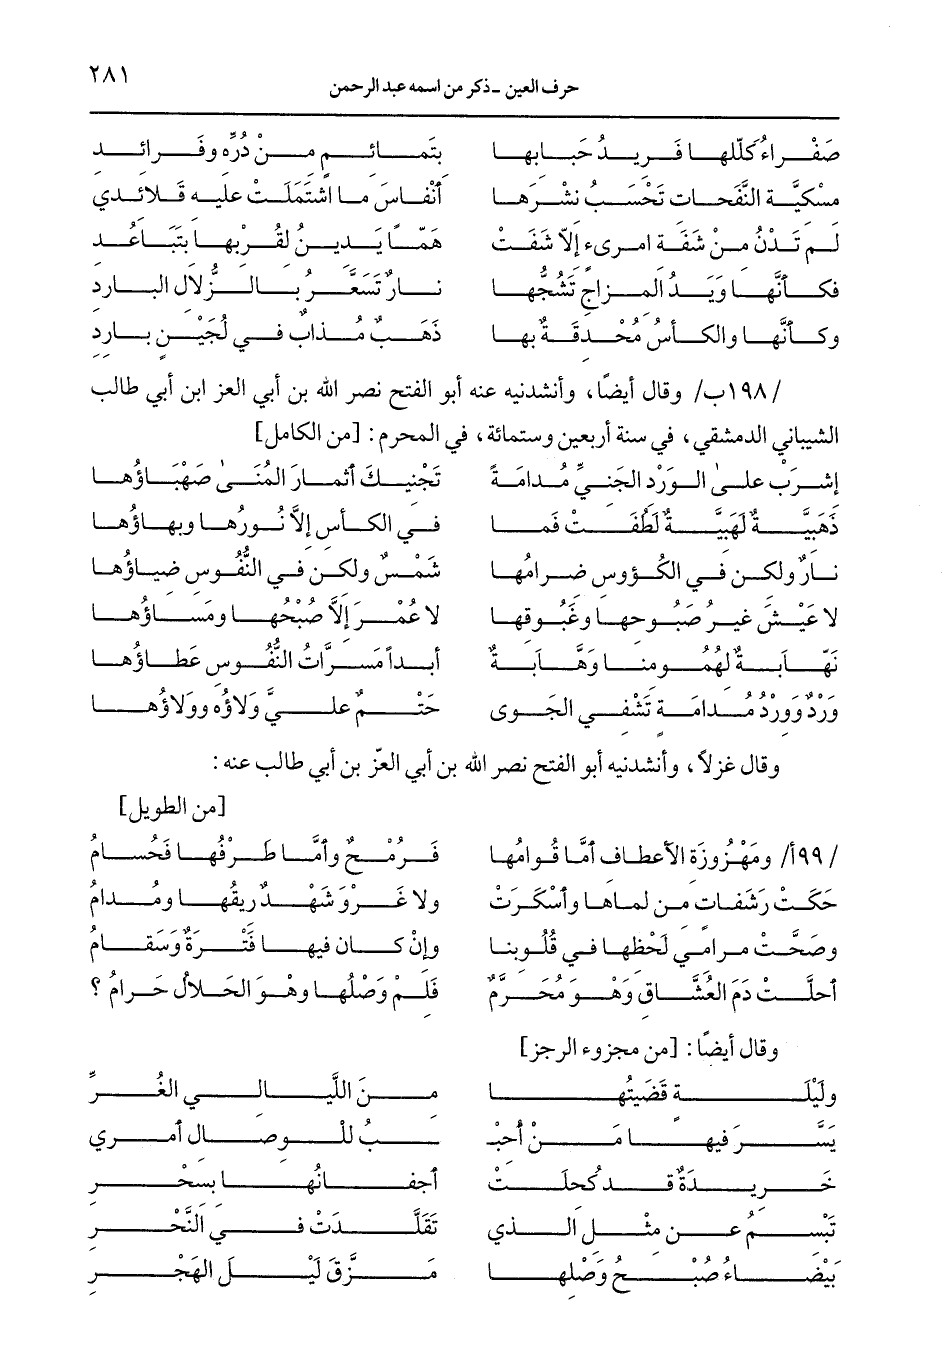 حرف العين - ذكر من اسمه عبد الرحمن ٢٨١
صَفْراءُ كلّلها فَريدُ حَبابِها بتَمائمٍ مِنْ دُرِّه وفَرائدِ
مسْكيَّة النَّفَحات تَحْسَبُ نشْرَها أنْفاسَ ما اشتَمَلَتْ عليه قَلائدي
لم تَدْنُ منْ شَفَة امرىءٍ إلاّ شَفَتْ همّاً يَدينُ لقُرْبِها بتَباعُدِ
فكأنَّها ويَدُ المزاج تَشُجُّها نارٌ تَسَعَّرُ بالزُّلال البارد
وكأنَّها والكأسُ مُحْدقَةٌ بها ذَهَبٌ مُذابٌ في لُجَيْنٍ بارد
/١٩٨ب/ وقال أيضًا، وأنشدنيه عنه أبو الفتح نصر الله بن أبي العز ابن أبي طالب
الشيباني الدمشقي، في سنة أربعين وستمائة، في المحرم: [من الكامل]
إشربْ على الوَرْد الجَنيِّ مُدامَةً تَجْنيكَ أثمارَ المُنَىٰ صَهْبَاؤُها
ذَهَبيَّةٌ لَهَبيَّةٌ لَطُفَتْ فَما في الكأس إلاَّ نُورُها وبهاؤُها
نارٌ ولكن في الكُؤوس ضرامُها شَمْسٌ ولكن في النُّفُوس ضياؤُها
لا عَيْشَ غيرُ صَبُوحها وغَبُوقها لا عُمْرَ إلاَّ صُبْحُها ومَساؤُها
نَهّابةٌ لهُمُومنا وَهَّابةٌ أبداً مَسَرَّاتُ النُّفُوس عَطاؤُها
وَرْدٌ وَوِرْدُ مُدامَة تَشْفي الجَوى حَتْمٌ عليَّ وَلاؤُه ووَلاؤُها
وقال غزلاً، وأنشدنيه أبو الفتح نصر الله بن أبي العزّ بن أبي طالب عنه:
[من الطويل]
/١٩٩أ/ ومَهْزوزَة الأعطاف أمَّا قوامُها فَرُمْحٌ وأمَّا طَرْفُها فَحُسامُ
حَكَتْ رَشَفات من لماها وأسْكَرَتْ ولا غَرْوَ شَهْدٌ ريقُها ومُدامُ
وصَحَّتْ مرامي لَحْظها في قُلُوبنا وإنْ كان فيها فَتْرَةٌ وَسَقامُ
أحلَّتْ دَمَ العُشَّاق وَهْو مُحَرَّمٌ فَلِمْ وَصْلُها وهْوَ الحَلالُ حَرامُ؟
وقال أيضًا: [من مجزوء الرجز]
ولَيْلَة قَضَيتُها منَ اللَّيالي الغُرِّ
يَسَّرَ فيها مَنْ أُحبْـ ـبُ للْوصال أمري
خَريدَةٌ قد كُحلَتْ أجفانُها بسحْر
تَبْسمُ عن مثْل الذي تَقَلَّدَتْ في النَّحْر
بَيْضاءُ صُبْحُ وَصْلِها مَزَّقَ لَيْلَ الهَجْر